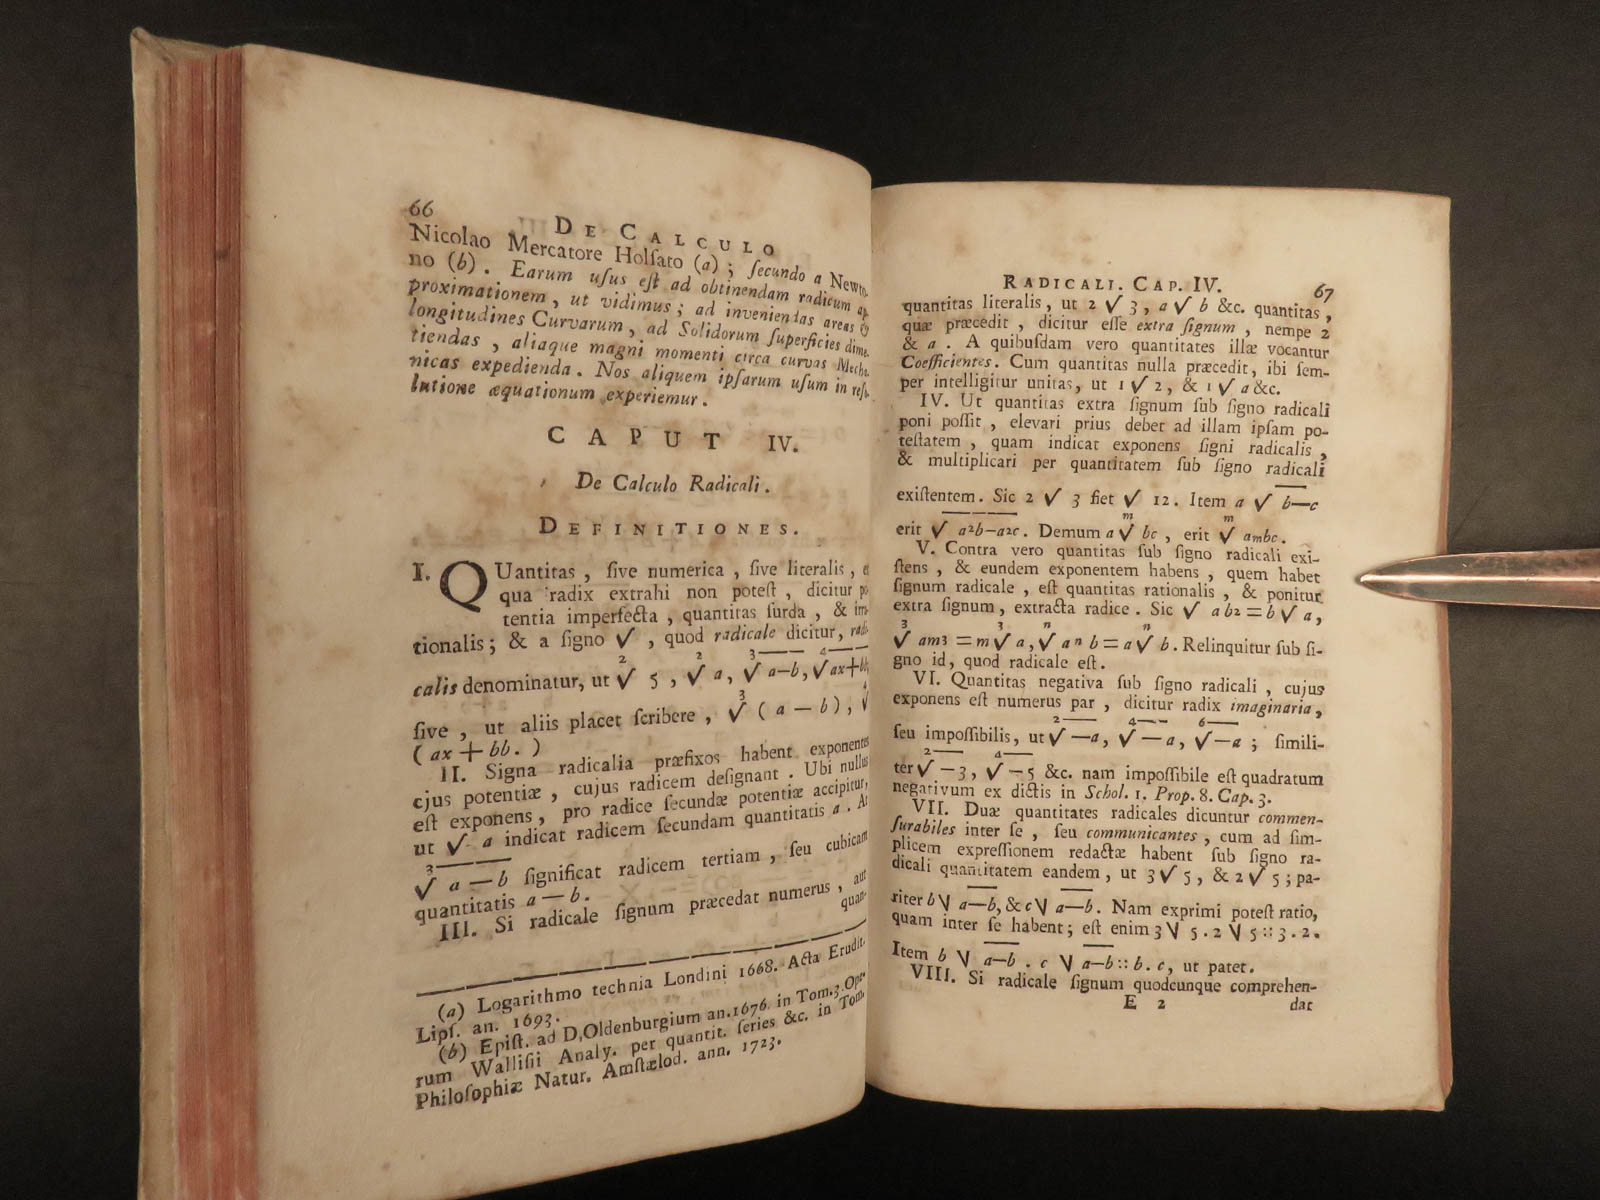 66 DE CALCULO
Nicolao Mercatore Holſato (a); ſecundo a Newto-
no (b). Earum uſus eſt ad obtinendam radicum ap-
proximationem, ut vidimus; ad inveniendas areas &
longitudines Curvarum, ad Solidorum ſuperficies dime-
tiendas, aliaque magni momenti circa curvas Mecha-
nicas expedienda. Nos aliquem ipſarum uſum in reſo-
lutione æquationum experiemur.
CAPUT IV.
De Calculo Radicali.
DEFINITIONES.
I. QUantitas, ſive numerica, ſive literalis, e
qua radix extrahi non poteſt, dicitur po-
tentia imperfecta, quantitas ſurda, & irra-
tionalis; & a ſigno √, quod radicale dicitur, radi-
calis denominatur, ut ²√ 5, ²√ a, ³√ a—b, ⁴√ ax+bb,
ſive, ut aliis placet ſcribere, ³√ (a—b), ⁴√
(ax+bb.)
II. Signa radicalia præfixos habent exponentes
ejus potentiæ, cujus radicem deſignant. Ubi nullus
eſt exponens, pro radice ſecundæ potentiæ accipitur,
ut √ a indicat radicem ſecundam quantitatis a. At
³√ a—b ſignificat radicem tertiam, ſeu cubicam
quantitatis a—b.
III. Si radicale ſignum præcedat numerus, aut
quan-
(a) Logarithmo technia Londini 1668. Acta Erudit.
Lipſ. an. 1693.
(b) Epiſt. ad D, Oldenburgium an. 1676. in Tom. 3. Ope-
rum Walliſii Analy. per quantit. ſeries &c. in Tom.
Philoſophiæ Natur. Amſtælod. ann. 1723.
RADICALI. CAP. IV. 67
quantitas literalis, ut 2 √ 3, a √ b &c. quantitas,
quæ præcedit, dicitur eſſe extra ſignum, nempe 2
& a. A quibuſdam vero quantitates illæ vocantur
Coefficientes. Cum quantitas nulla præcedit, ibi ſem-
per intelligitur unitas, ut 1 √ 2, & 1 √ a &c.
IV. Ut quantitas extra ſignum ſub ſigno radicali
poni poſſit, elevari prius debet ad illam ipſam po-
teſtatem, quam indicat exponens ſigni radicalis,
& multiplicari per quantitatem ſub ſigno radicali
exiſtentem. Sic 2 √ 3 fiet √ 12. Item a √ b—c
erit √ a²b—a²c. Demum a ᵐ√ bc, erit ᵐ√ aᵐbc.
V. Contra vero quantitas ſub ſigno radicali exi-
ſtens, & eundem exponentem habens, quem habet
ſignum radicale, eſt quantitas rationalis, & ponitur
extra ſignum, extracta radice. Sic √ ab² = b √ a,
³√ am³ = m ³√ a, ⁿ√ aⁿ b = a ⁿ√ b. Relinquitur ſub ſi-
gno id, quod radicale eſt.
VI. Quantitas negativa ſub ſigno radicali, cujus
exponens eſt numerus par, dicitur radix imaginaria,
ſeu impoſſibilis, ut ²√ —a, ⁴√ —a, ⁶√ —a; ſimili-
ter ²√ —3, ⁴√ —5 &c. nam impoſſibile eſt quadratum
negativum ex dictis in Schol. 1. Prop. 8. Cap. 3.
VII. Duæ quantitates radicales dicuntur commen-
ſurabiles inter ſe, ſeu communicantes, cum ad ſim-
plicem expreſſionem redactæ habent ſub ſigno ra-
dicali quantitatem eandem, ut 3 √ 5, & 2 √ 5; pa-
riter b √ a—b, & c √ a—b. Nam exprimi poteſt ratio,
quam inter ſe habent; eſt enim 3 √ 5 . 2 √ 5 :: 3 . 2.
Item b √ a—b . c √ a—b :: b . c, ut patet.
VIII. Si radicale ſignum quodcunque comprehen-
E 2 dat